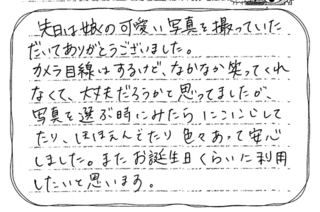 先日は娘の可愛い写真を撮っていた
だいてありがとうございました。
カメラ目線はするけど、なかなか笑ってくれ
なくて、大丈夫だろうかと思ってましたが、
写真を選ぶ時にみたら にこにこして
たり、ほほえんでたり 色々あって安心
しました。またお誕生日くらいに利用
したいと思います。